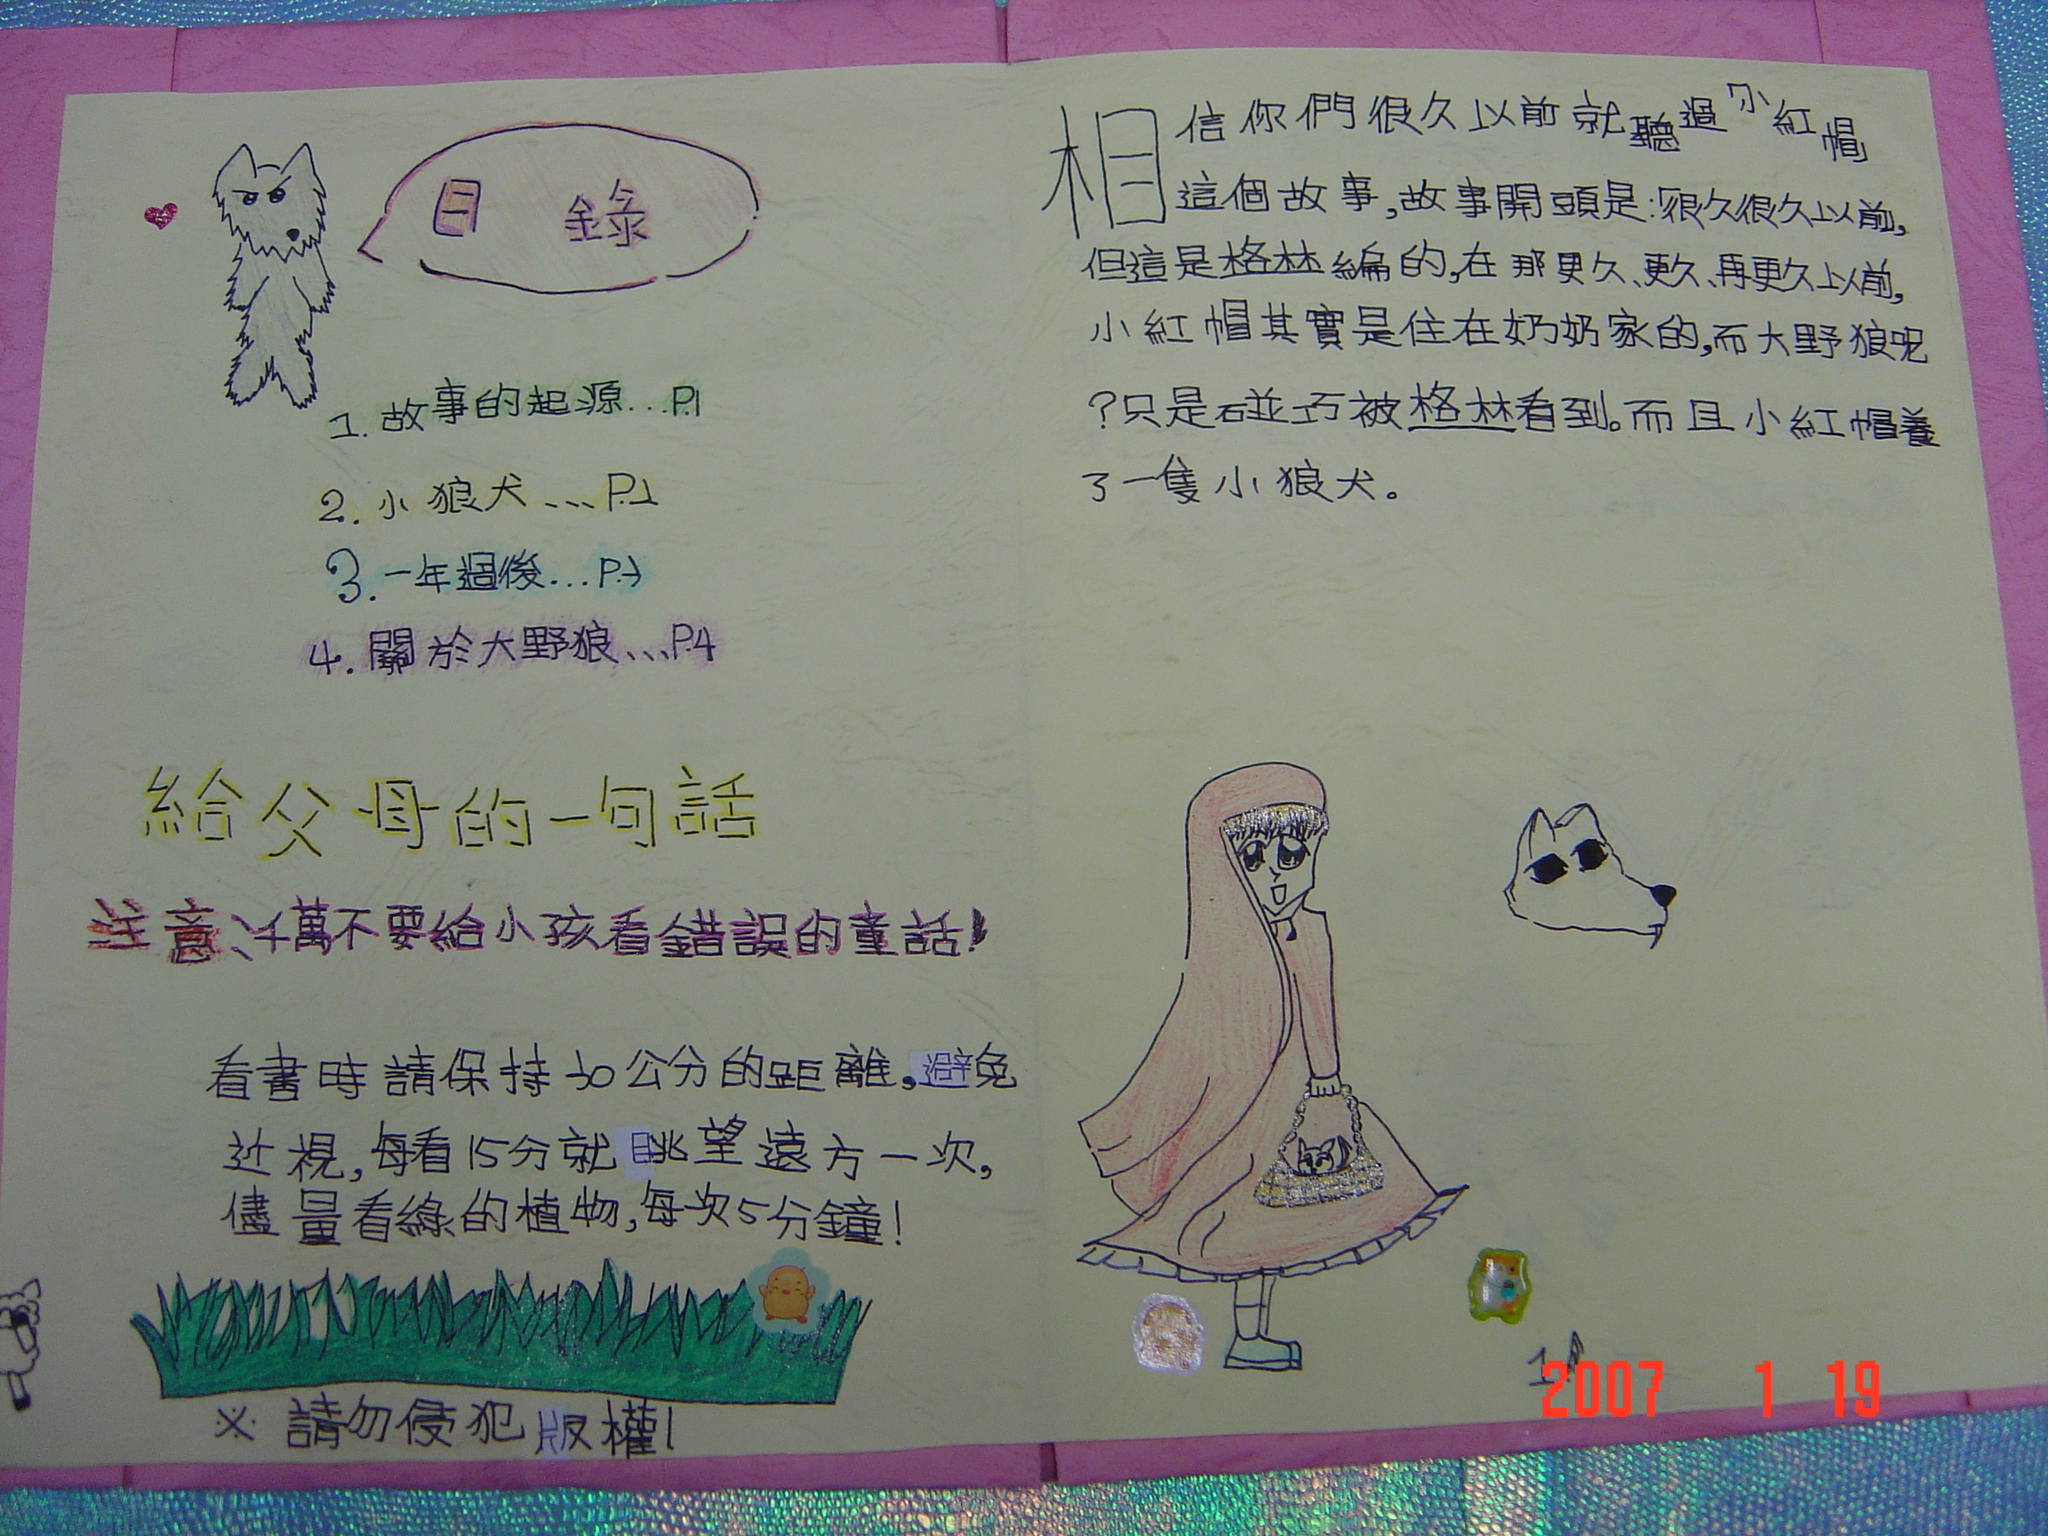 目 錄
1. 故事的起源...P.1
2. 小狼犬...P.2
3. 一年過後...P.3
4. 關於大野狼...P.4
給父母的一句話
注意、千萬不要給小孩看錯誤的童話!
看書時請保持30公分的距離,避免
近視,每看15分就眺望遠方一次,
儘量看綠的植物,每次5分鐘!
※ 請勿侵犯版權!
相信你們很久以前就聽過「小紅帽」
這個故事,故事開頭是:「很久很久以前,
但這是格林編的,在那更久、更久、再更久以前,
小紅帽其實是住在奶奶家的,而大野狼呢
?只是碰巧被格林看到。而且小紅帽養
了一隻小狼犬。
1
2007 1 19